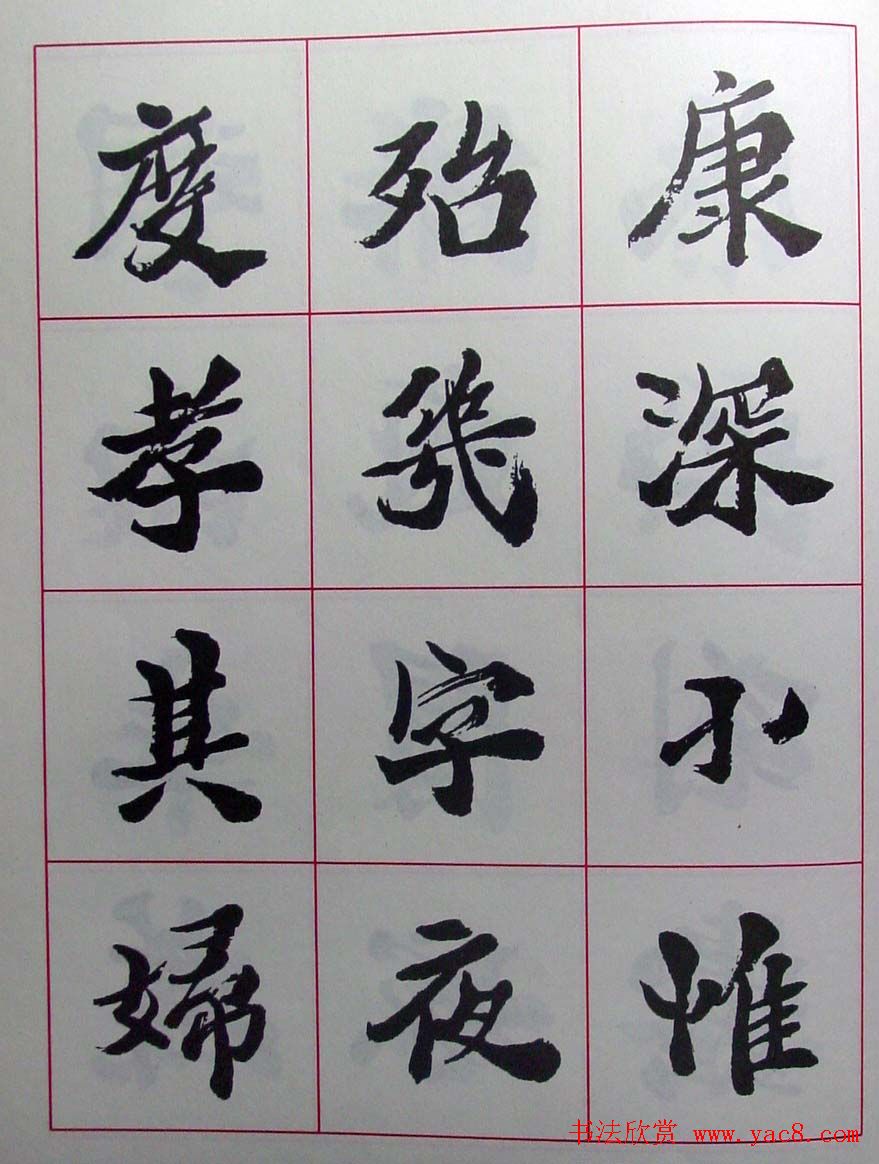 康深小惟
殆幾字夜
度孝其婦
书法欣赏 www.yac8.com